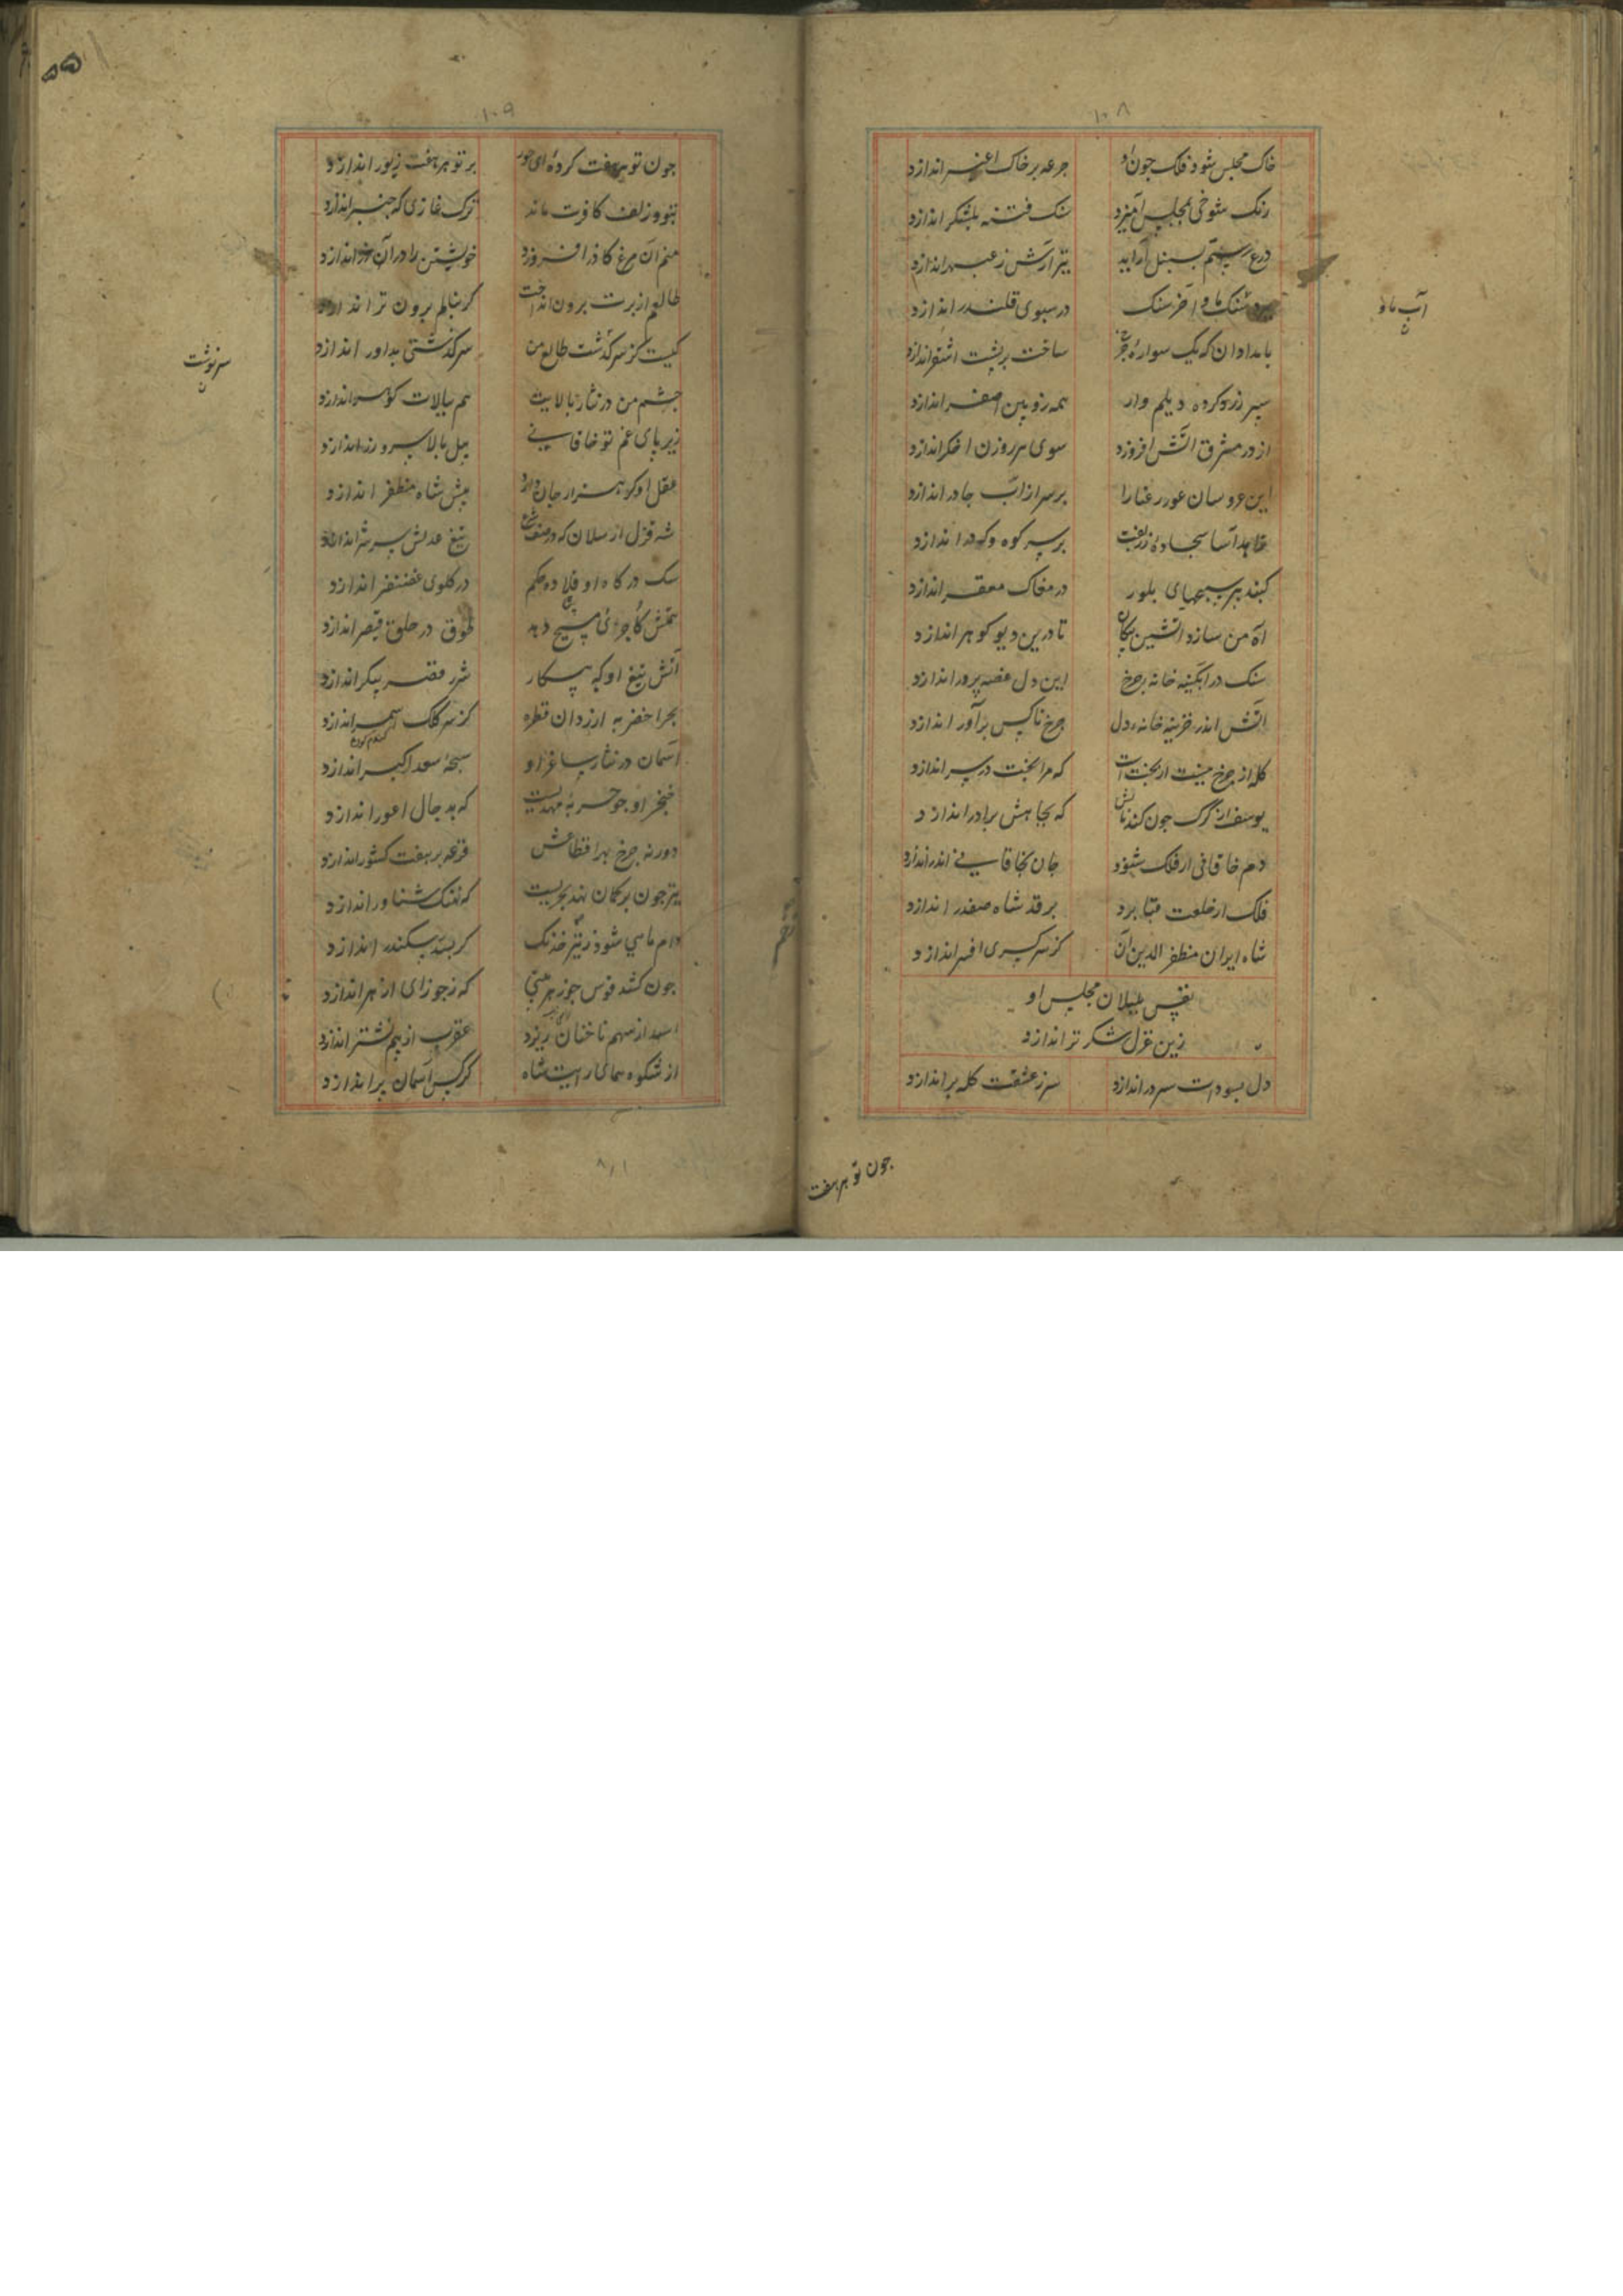 ۱۰۸
خاک مجلس شود فلک چون او جرعه بر خاک اغبر اندازد
رنک شوخی بمجلس آمیزد سنک فتنه بلشکر اندازد
درع رستم بسنبل آراید تیر آرش ز عبهر اندازد
سنک ما و آخر سنک در سبوی قلندر اندازد
آب ما و
ن
بامدادان که یک سواره چرخ ساخت بر پشت اشقر اندازد
سپر زرد کرده دیلم وار همه زوبین اصفر اندازد
از در مشرق آتش افروزد سوی هر روزن اخکر اندازد
این عروسان عور رعنا را بر سر از آب جادر اندازد
زاهد آسا سجاده زربفت بر سر کوه و کردر اندازد
کیند سبحهای بلور در مغاک مقعر اندازد
آه من سازد آتشین پیکان تا درین دیو کوهر اندازد
سنک در آبکینه خانه جرخ این دل غصه پرور اندازد
آتش اندر خزینه خانه دل جرخ ناکس برآور اندازد
کله از جرخ نیست از بختست که مرا بخت در سر اندازد
یوسف از کرک جون کند نالش که بجاهش برادر اندازد
دم خاقانی ار فلک شنود جان بخاقانی اندر اندازد
فلک از خلعت قبا برد بر قد شاه صفدر اندازد
شاه ایران مظفر الدین آن کز سر کسری افسر اندازد
نفس بلبلان مجلس او
زین غزل شکر تر اندازد
دل بسودات سر در اندازد سر ز عشقت کله بر اندازد
جون تو هر هفت
۱۰۹
۵۵
جون تو هر هفت کرده ای حور بر تو هر هفت زیور اندازد
بتو و زلف کافرت ماند ترک غازی که جنبر اندازد
منم آن مرغ کاذر افروزد خویشتن را در آن اندازد
طالعم از برت برون انداخت کر بنالم برون تر اندازد
کیست کز سر گذشت طالع من سرکذشتی بداور اندازد
سرنوشت
ن
جشم من در نثار بالایت هم ببالات کوهر اندازد
زیر پای غم تو خاقانی پیل بالا سر و زر اندازد
عقل او کر هزار جان دارد پیش شاه مظفر اندازد
شه قزل ارسلان که در صف شرع تیغ عدلش سر شر اندازد
سک درکاه او قلاده حکم در کلوی غضنفر اندازد
همتش کاجری مسیح دهد طوق در حلق قیصر اندازد
آتش تیغ او که پیکار شرر قصر پیکر اندازد
بحر اخضر به ارزد آن قطره کز سر کلک اسمر اندازد
آسمان در نثار ساغر او سبحه سعد اکبر اندازد
خنجر او جو حربه مهدیست که بدجال اعور اندازد
دور نه جرخ بهر اقطاعش قرعه بر هفت کشور اندازد
تیر جون بر کمان نهد بحریست که نهنک شناور اندازد
دام ماهی شود ز تیر خدنک کر بسد سکندر اندازد
جون کشد قوس جوزهر بینی که ز جوزای ازهر اندازد
اسد از سهم ناخنان ریزد عقرب از بیم نشتر اندازد
از شکوه همای رایت شاه کرکس آسمان پر اندازد